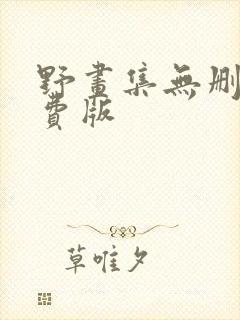 野畫集無刪
費版
草唯夕